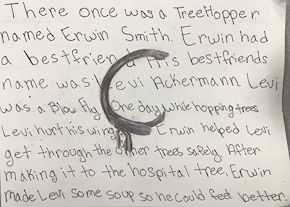 There once was a TreeHopper
named Erwin Smith. Erwin had
a bestfriend His bestfriends
name was Levi Ackermann Levi
was a Blow fly One day while hopping trees
Levi hurt his wing Erwin helped Levi
get through the other trees safely. After
making it to the hospital tree, Erwin
made Levi some soup so he could feel better.